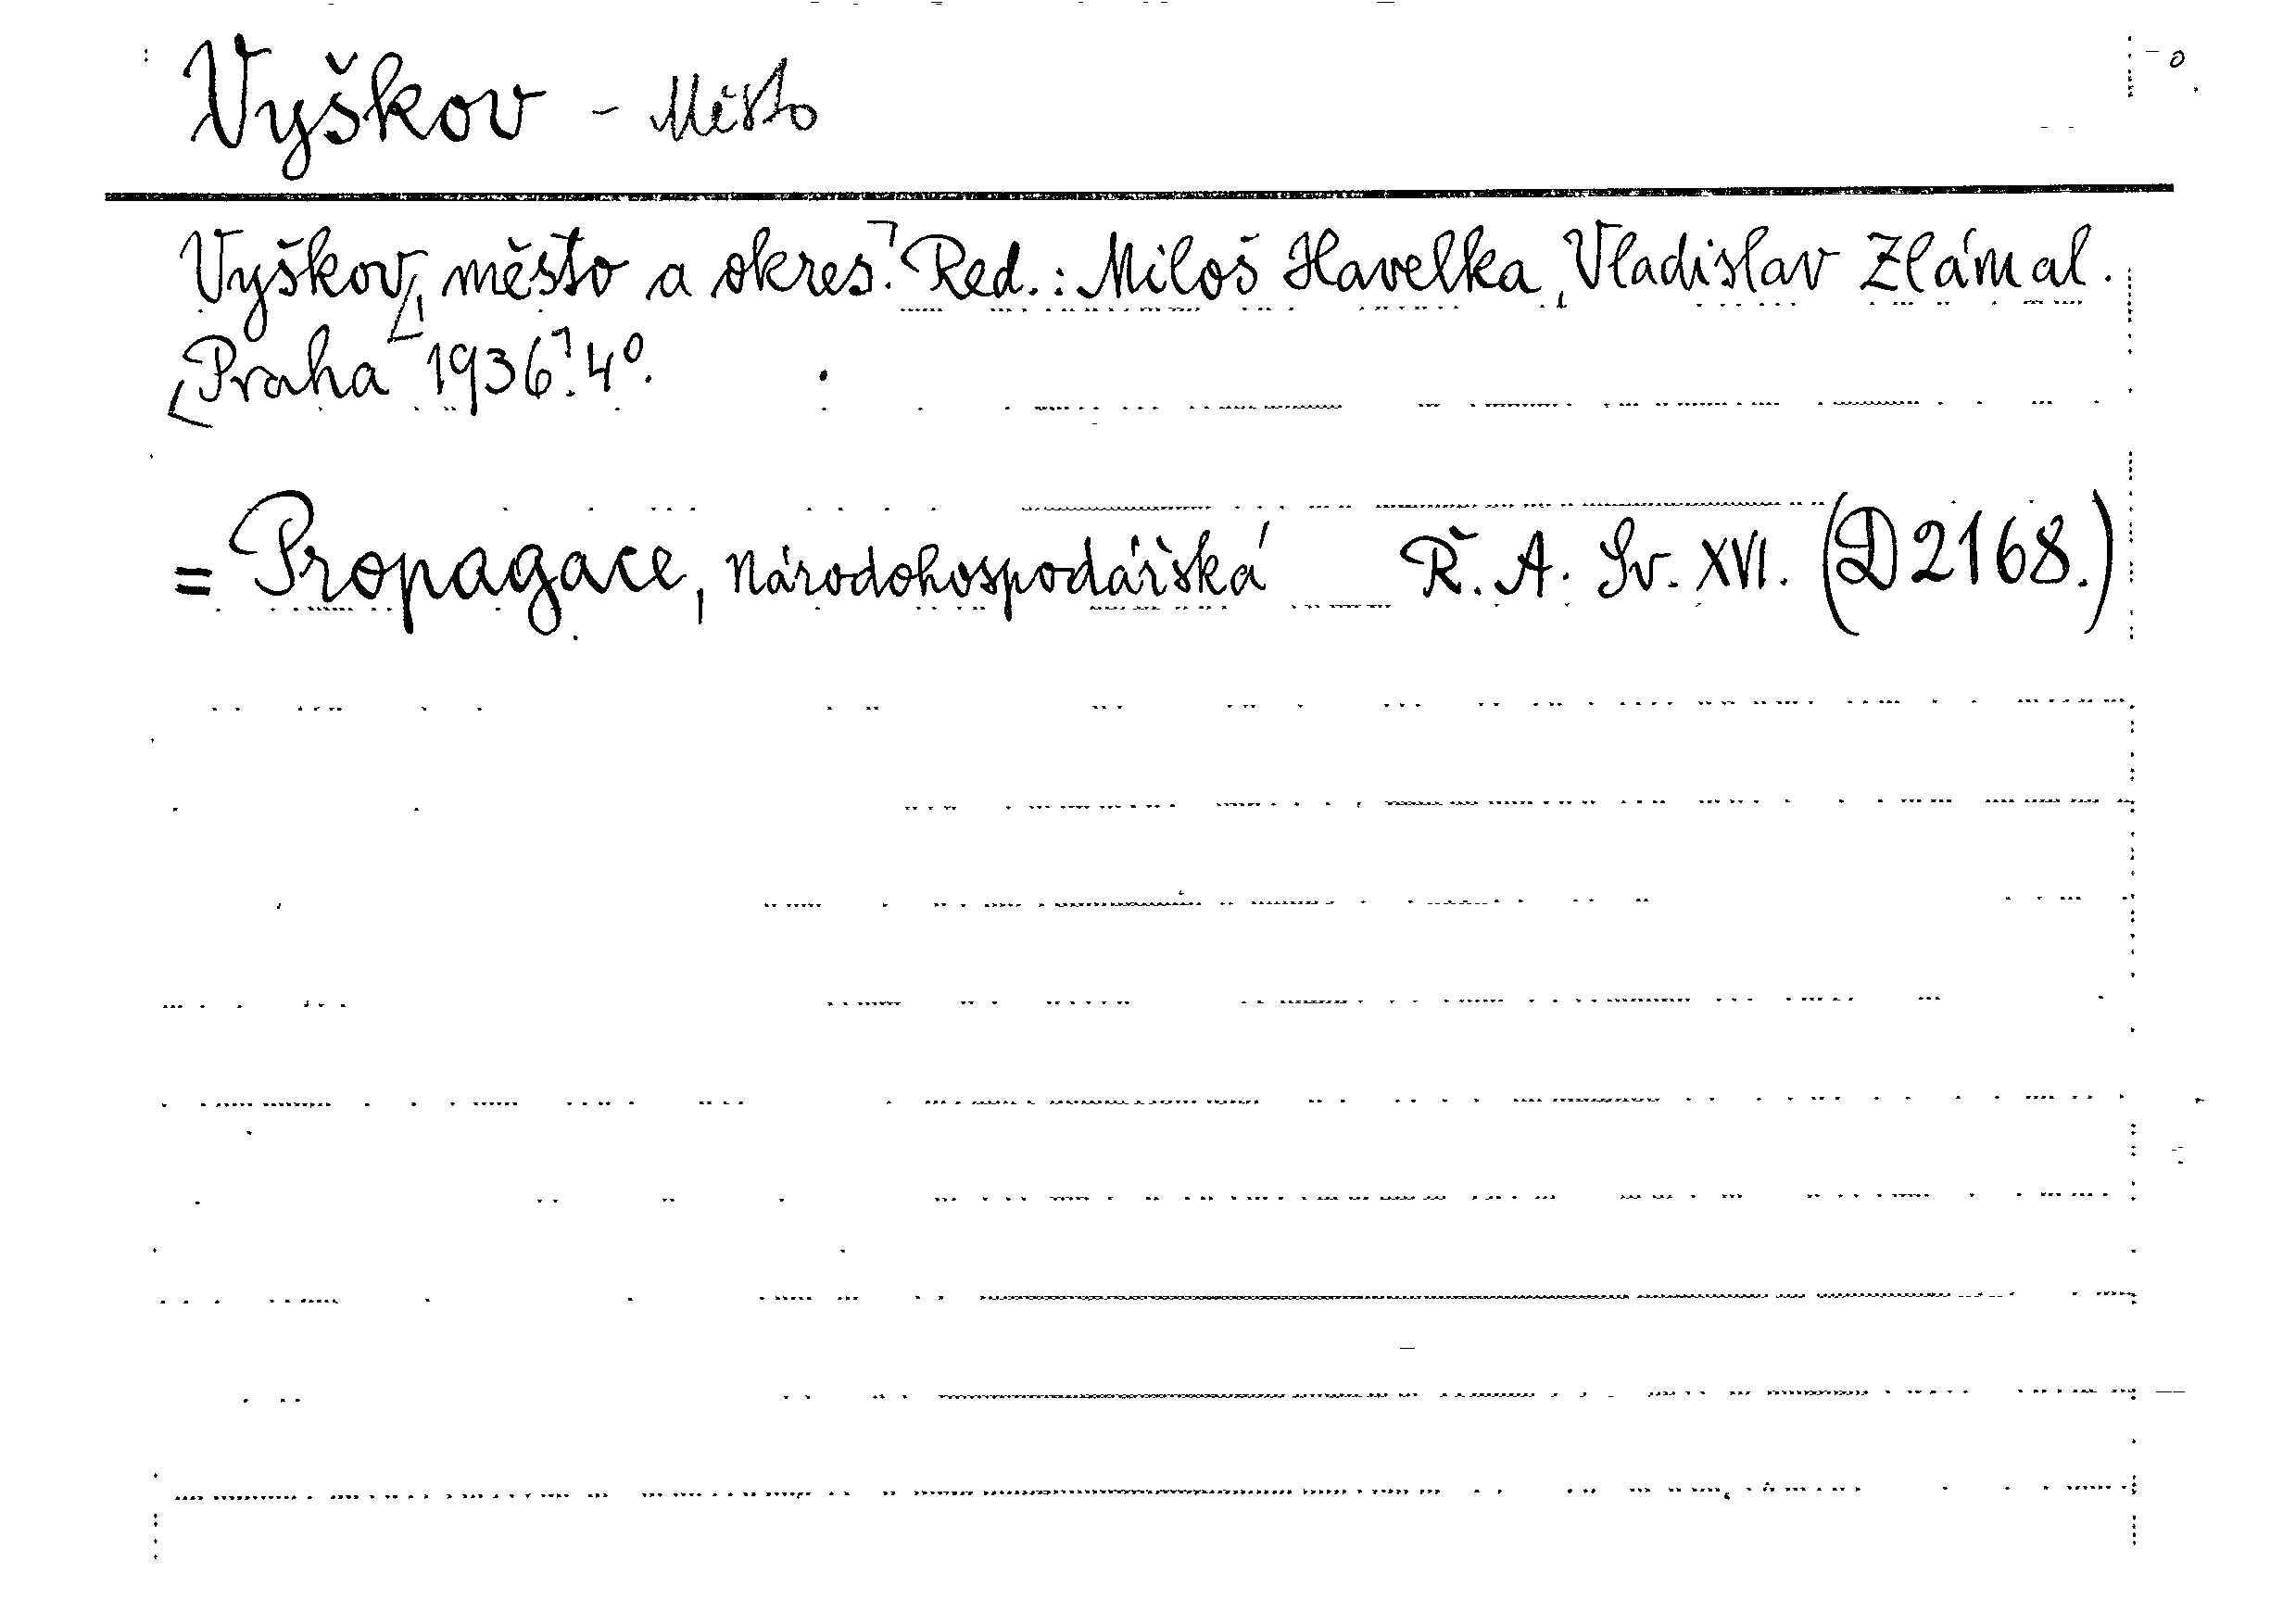 Vyškov - Město
Vyškov, město a okres. Red.: Miloš Havelka, Vladislav Zlámal.
Praha 1936. 4°.
= Propagace, národohospodářská Ř. A. Sv. XVI. (D 2168.)